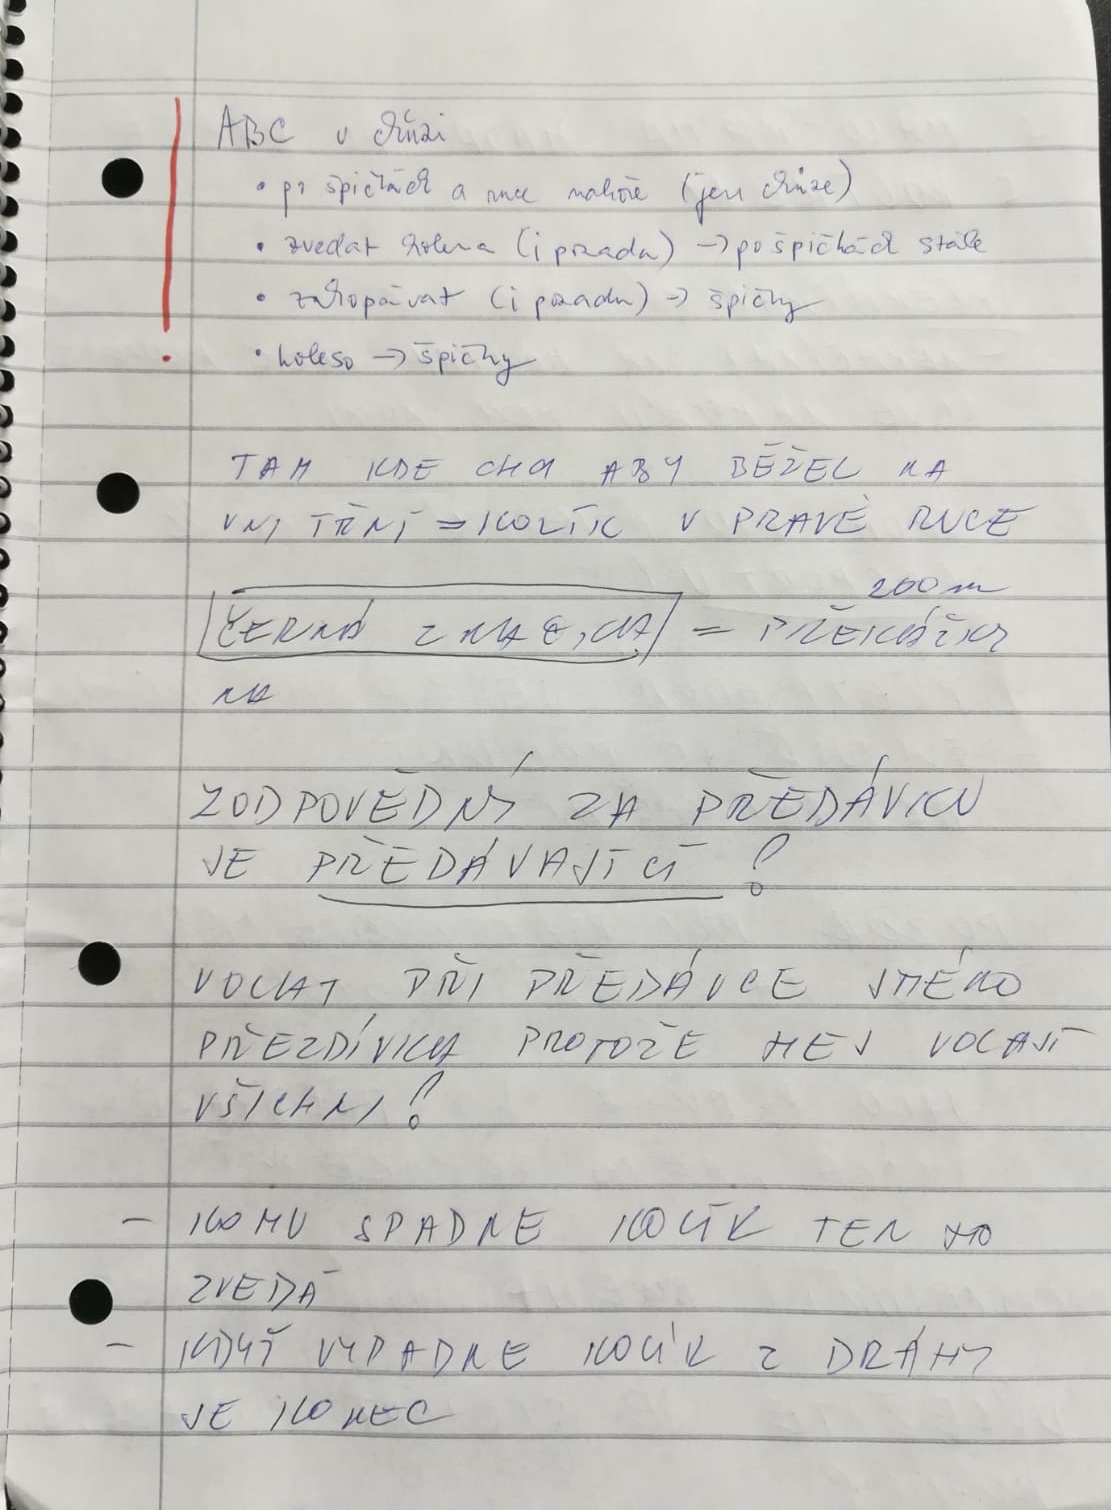 ABC v chůzi
• po špičkách a ruce nahoře (jen chůze)
• zvedat kolena (i pozadu) → po špičkách stále
• zakopávat (i pozadu) → špičky
• koleso → špičky
TAM KDE CHCI ABY BĚŽEL NA
VNITŘNÍ = KOLÍK V PRAVÉ RUCE
200 m
ČERNÁ ZNAČKA = PŘEKÁŽKY
NA
ZODPOVĚDNÝ ZA PŘEDÁVKU
JE PŘEDÁVAJÍCÍ !
VOLAT PŘI PŘEDÁVCE JMÉNO
PŘEZDÍVKA PROTOŽE HEJ VOLAJÍ
VŠICHNI !
- KOMU SPADNE KOLÍK TEN HO
ZVEDÁ
- KDYŽ VYPADNE KOLÍK Z DRÁHY
JE KONEC